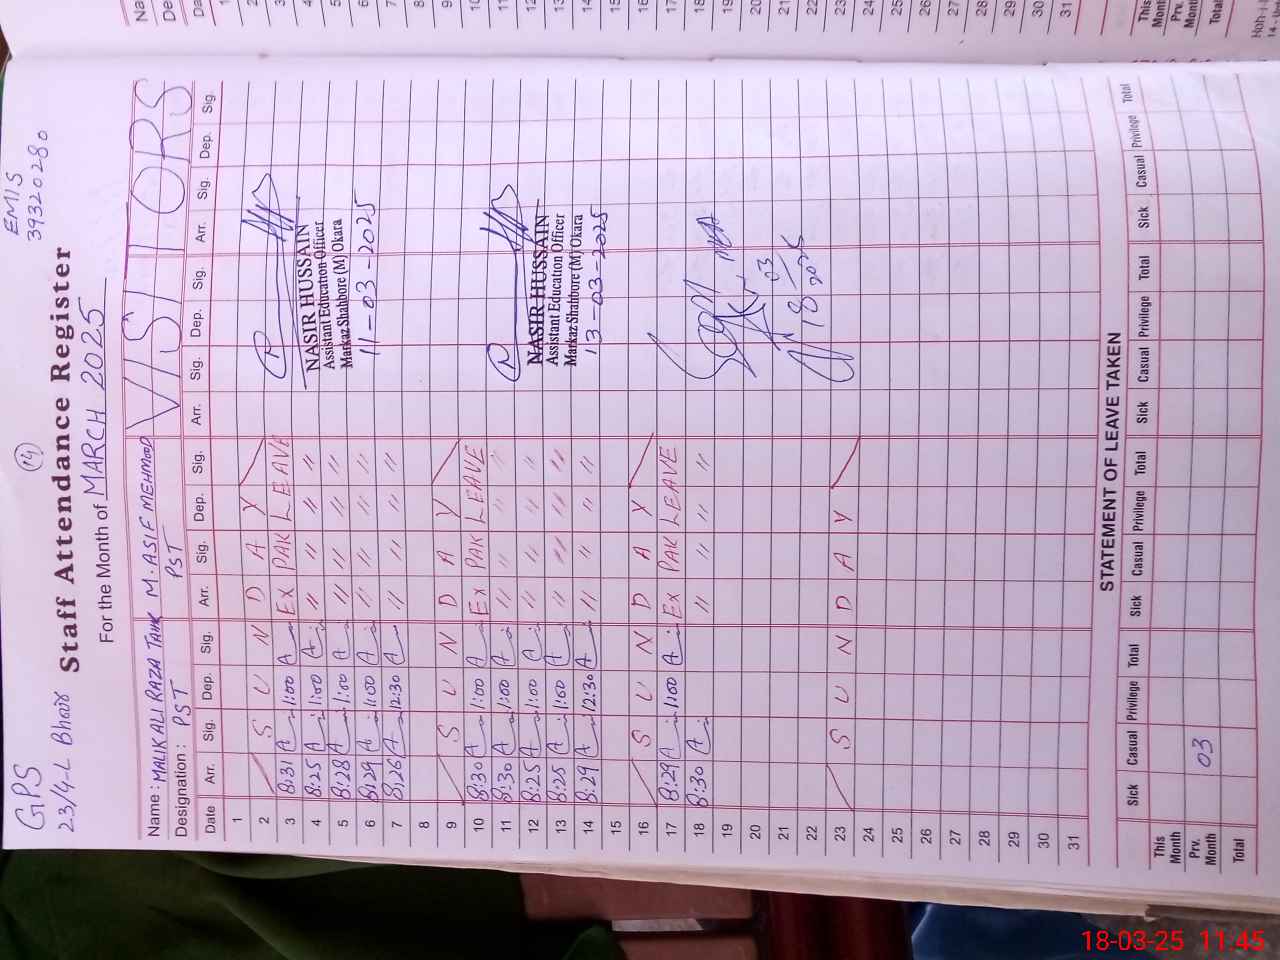 GPS
23/4-L Bhair
14
EMIS
39320280
Staff Attendance Register
For the Month of MARCH 2025
Name : MALIK ALI RAZA TAHIR M. ASIF MEHMOOD VISITORS
Designation : PST PST
Date Arr. Sig. Dep. Sig. Arr. Sig. Dep. Sig. Arr. Sig. Dep. Sig. Arr. Sig. Dep. Sig.
1
2 S U N D A Y
3 8:31 A 1:00 A Ex PAK LEAVE
4 8:25 A 1:00 A " " " "
5 8:28 A 1:00 A " " " "
6 8:29 A 1:00 A " " " "
7 8:26 A 12:30 A " " " "
8
9 S U N D A Y
10 8:30 A 1:00 A Ex PAK LEAVE
11 8:30 A 1:00 A " " " "
12 8:25 A 1:00 A " " " "
13 8:25 A 1:00 A " " " "
14 8:29 A 12:30 A " " " "
15
16 S U N D A Y
17 8:29 A 1:00 A Ex PAK LEAVE
18 8:30 A " " " "
19
20
21
22
23 S U N D A Y
24
25
26
27
28
29
30
31
NASIR HUSSAIN
Assistant Education Officer
Markaz Shahbore (M) Okara
11-03-2025
NASIR HUSSAIN
Assistant Education Officer
Markaz Shahbore (M) Okara
13-03-2025
18/03
2025
STATEMENT OF LEAVE TAKEN
Sick Casual Privilege Total Sick Casual Privilege Total Sick Casual Privilege Total Sick Casual Privilege Total
This Month
Prv. Month 03
Total
Na
De
Da
1
2
3
4
5
6
7
8
9
10
11
12
13
14
15
16
17
18
19
20
21
22
23
24
25
26
27
28
29
30
31
This Month
Prv. Month
Total
18-03-25 11:45